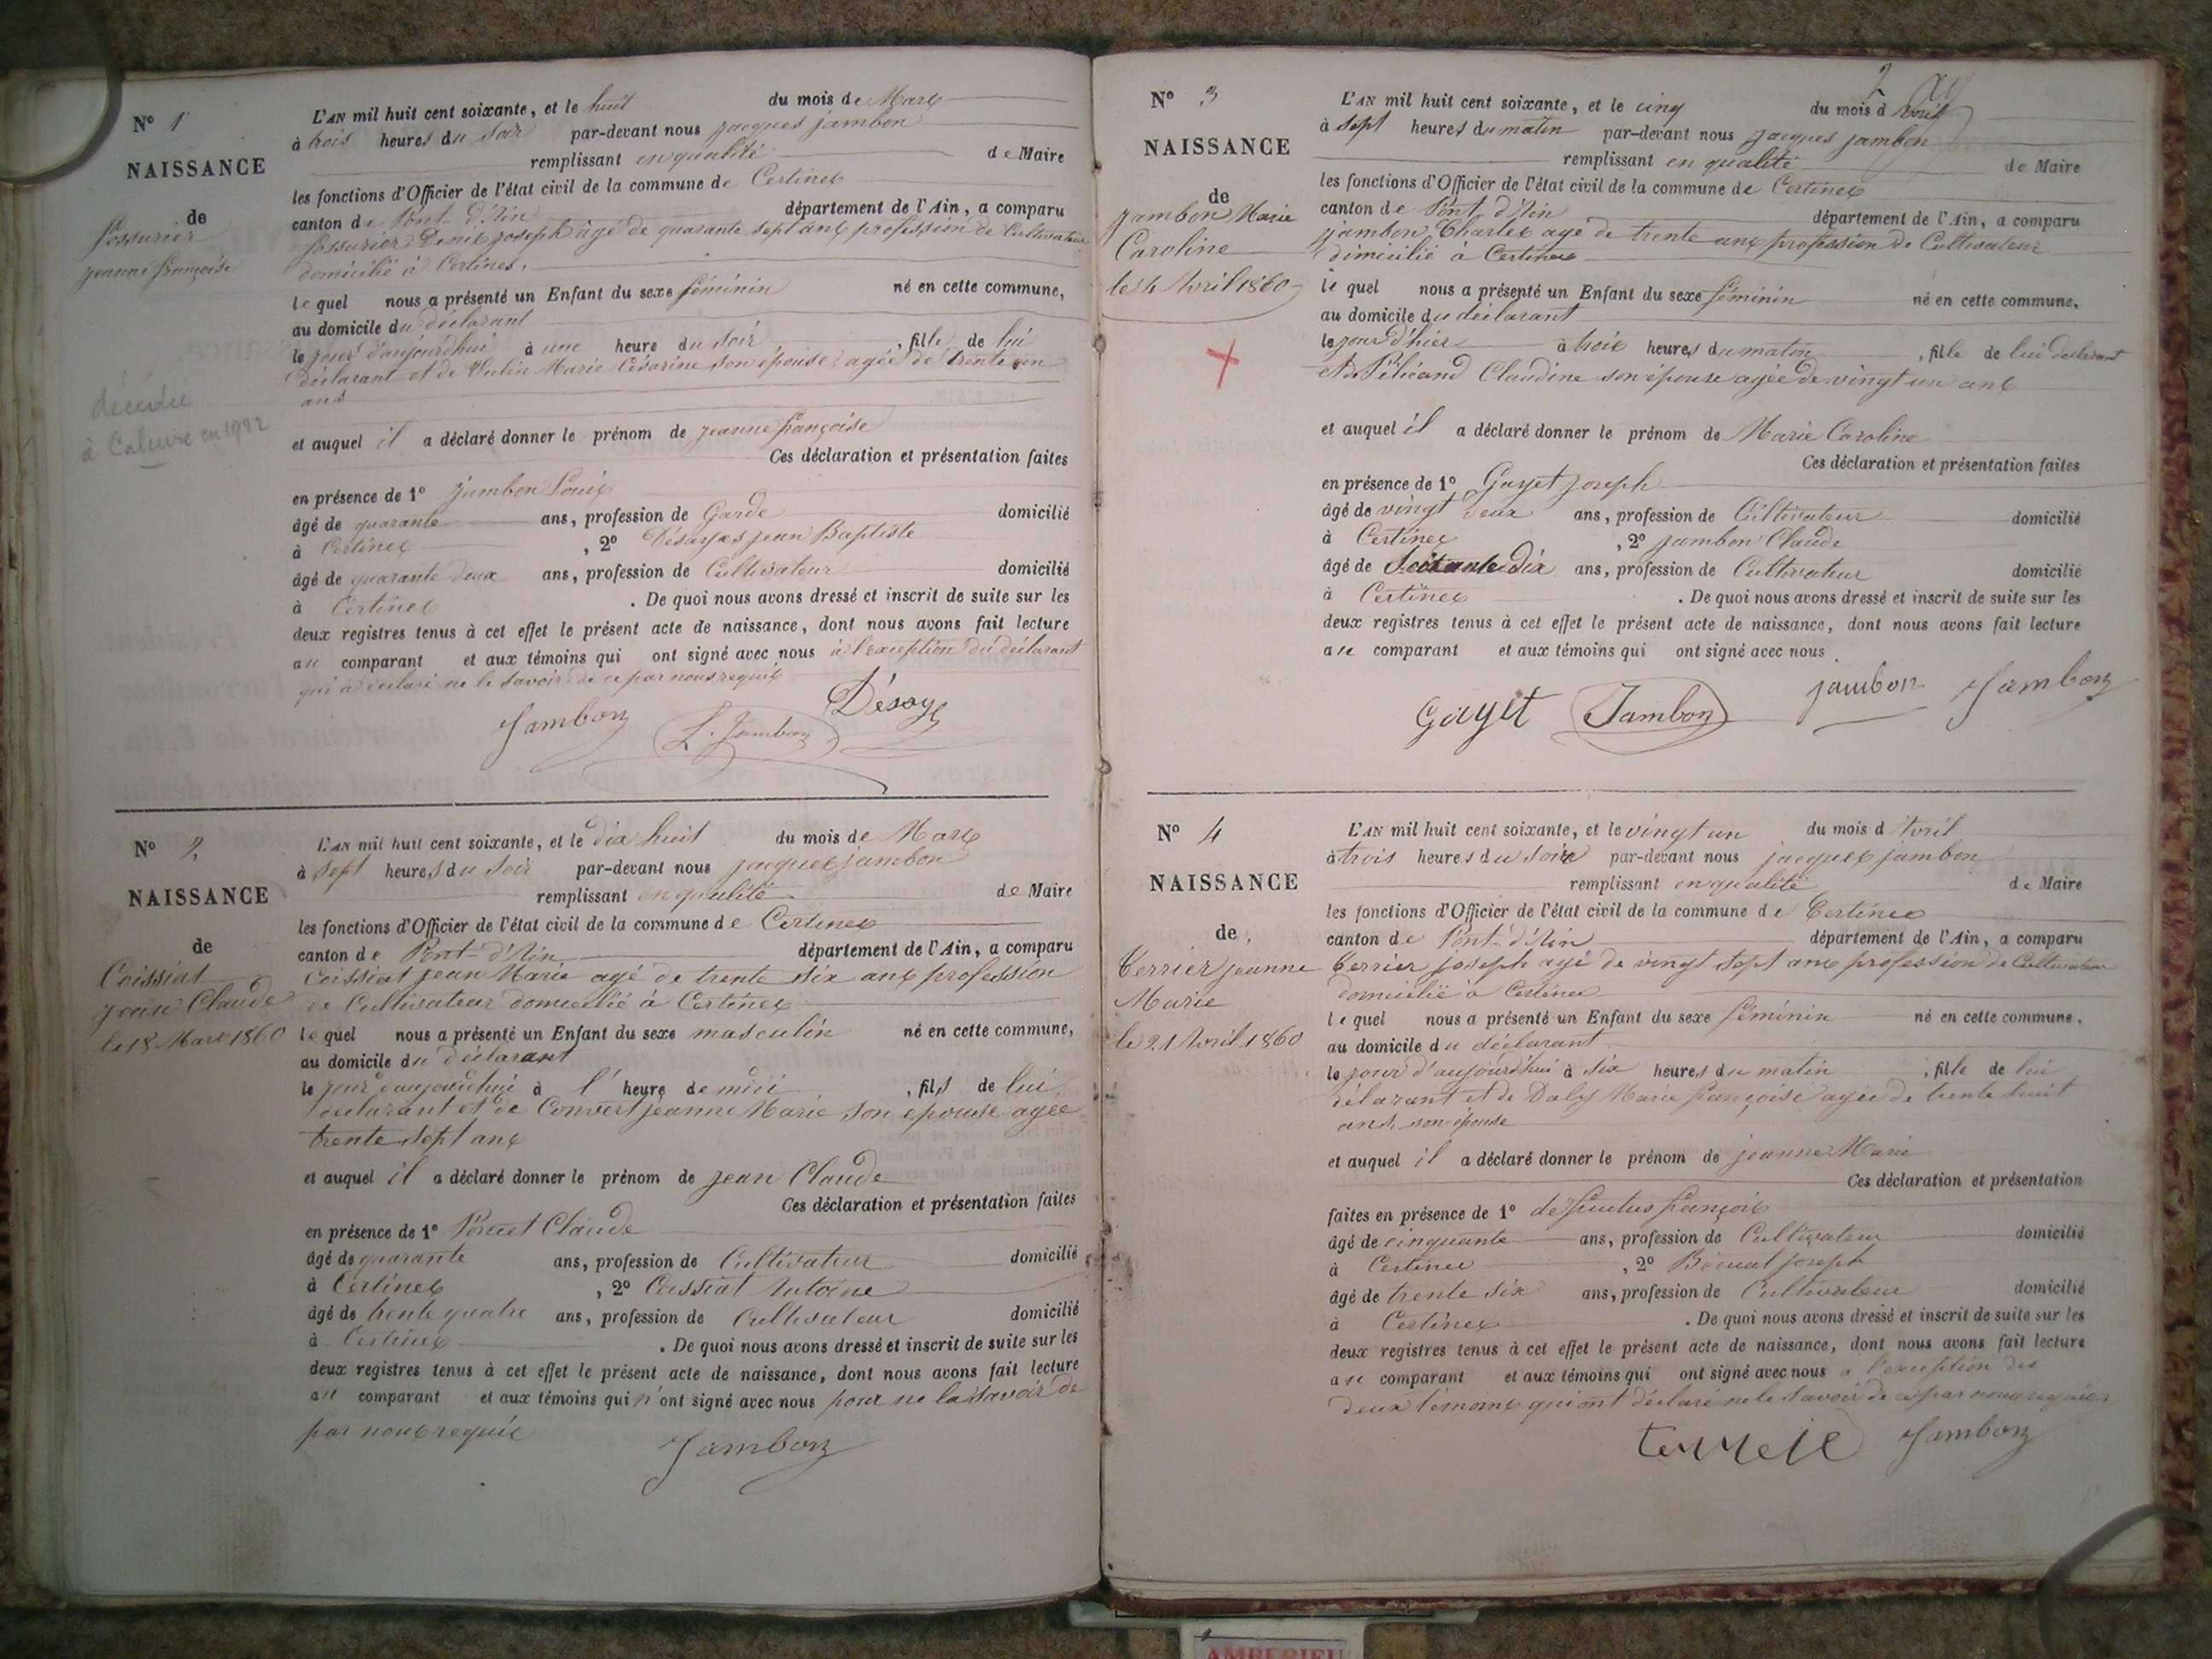 N° 1
NAISSANCE
de
Fossurier
jeanne françoise
décédée
à Caluire en 1922
L'AN mil huit cent soixante, et le huit du mois de Mars
à trois heures du Soir par-devant nous jacques jambon
remplissant en qualité de Maire
les fonctions d'Officier de l'état civil de la commune de Certines
canton de Pont-d'Ain département de l'Ain, a comparu
fossurier Denis joseph âgé de quarante sept ans profession de Cultivateur
domicilié à Certines.
lequel nous a présenté un Enfant du sexe féminin né en cette commune,
au domicile du déclarant
le jour d'aujourdhui à une heure du soir, fille de lui
déclarant et de Marie Césarine son épouse, agée de trente un
ans
et auquel il a déclaré donner le prénom de jeanne françoise
Ces déclaration et présentation faites
en présence de 1° jambon Louis
âgé de quarante ans, profession de Garde domicilié
à Certines, 2° Désayes jean Baptiste
âgé de quarante deux ans, profession de Cultivateur domicilié
à Certines. De quoi nous avons dressé et inscrit de suite sur les
deux registres tenus à cet effet le présent acte de naissance, dont nous avons fait lecture
au comparant et aux témoins qui ont signé avec nous à l'exception du déclarant
qui a déclaré ne le savoir de ce par nous requis
Jambon L. Jambon Désaye
N° 2
NAISSANCE
de
Coissiat
jean Claude
le 18 Mars 1860
L'AN mil huit cent soixante, et le dix huit du mois de Mars
à sept heures du soir par-devant nous jacques jambon
remplissant en qualité de Maire
les fonctions d'Officier de l'état civil de la commune de Certines
canton de Pont-d'Ain département de l'Ain, a comparu
Coissiat jean Marie agé de trente six ans profession
de Cultivateur domicilié à Certines
lequel nous a présenté un Enfant du sexe masculin né en cette commune,
au domicile du déclarant
le jour d'aujourdhui à l'heure de midi, fils de lui
déclarant et de Convert jeanne Marie son épouse agée
trente sept ans
et auquel il a déclaré donner le prénom de jean Claude
Ces déclaration et présentation faites
en présence de 1° Poncet Claude
âgé de quarante ans, profession de Cultivateur domicilié
à Certines, 2° Coissiat Antoine
âgé de trente quatre ans, profession de Cultivateur domicilié
à Certines. De quoi nous avons dressé et inscrit de suite sur les
deux registres tenus à cet effet le présent acte de naissance, dont nous avons fait lecture
au comparant et aux témoins qui n'ont signé avec nous pour ne la savoir de
par nous requis
Jambon
2
N° 3
NAISSANCE
de
jambon Marie
Caroline
le 4 Avril 1860
L'AN mil huit cent soixante, et le cinq du mois d'Avril
à sept heures du matin par-devant nous jacques jambon
remplissant en qualité de Maire
les fonctions d'Officier de l'état civil de la commune de Certines
canton de Pont d'Ain département de l'Ain, a comparu
jambon Charles agé de trente ans profession de Cultivateur
dimicilié à Certines
lequel nous a présenté un Enfant du sexe féminin né en cette commune,
au domicile du déclarant
le jour d'hier à trois heures du matin, fille de lui declarant
et de Pélicand Claudine son épouse agée de vingt un ans
et auquel il a déclaré donner le prénom de Marie Caroline
Ces déclaration et présentation faites
en présence de 1° Gayet joseph
âgé de vingt deux ans, profession de Cultivateur domicilié
à Certines, 2° jambon Claude
âgé de Soixante Dix ans, profession de Cultivateur domicilié
à Certines. De quoi nous avons dressé et inscrit de suite sur les
deux registres tenus à cet effet le présent acte de naissance, dont nous avons fait lecture
au comparant et aux témoins qui ont signé avec nous.
Gayet Jambon jambon Jambon
N° 4
NAISSANCE
de
Terrier jeanne
Marie
le 21 Avril 1860
L'AN mil huit cent soixante, et le vingt un du mois d'Avril
à trois heures du soir par-devant nous jacques jambon
remplissant en qualité de Maire
les fonctions d'Officier de l'état civil de la commune de Certines
canton de Pont-d'Ain département de l'Ain, a comparu
Terrier joseph agé de vingt sept ans profession de Cultivateur
domicilié à Certines
lequel nous a présenté un Enfant du sexe féminin né en cette commune,
au domicile du déclarant
le jour d'aujourd'hui à six heures du matin, fille de lui
délarant et de Daly Marie françoise agée de trente huit
ans son épouse
et auquel il a déclaré donner le prénom de jeanne Marie
Ces déclaration et présentation
faites en présence de 1° françois
âgé de cinquante ans, profession de Cultivateur domicilié
à Certines, 2° joseph
âgé de trente six ans, profession de Cultivateur domicilié
à Certines. De quoi nous avons dressé et inscrit de suite sur les
deux registres tenus à cet effet le présent acte de naissance, dont nous avons fait lecture
au comparant et aux témoins qui ont signé avec nous a l'exception des
deux témoins qui ont déclaré ne le savoir de ce par nous requis
Jambon
AMBERIEU